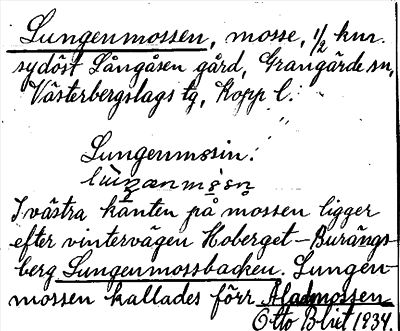 Lungenmossen, mosse, 1/2 km.
sydöst Långåsen gård, Grangärde sn,
Västerbergslags tg, Kopp l.
Lungenmosin.
I västra kanten på mossen ligger
efter vintervägen Hoberget – Burängs-
berg Lungenmossbacken. Lungen-
mossen kallades förr Aladmossen
Otto Blixt 1934.